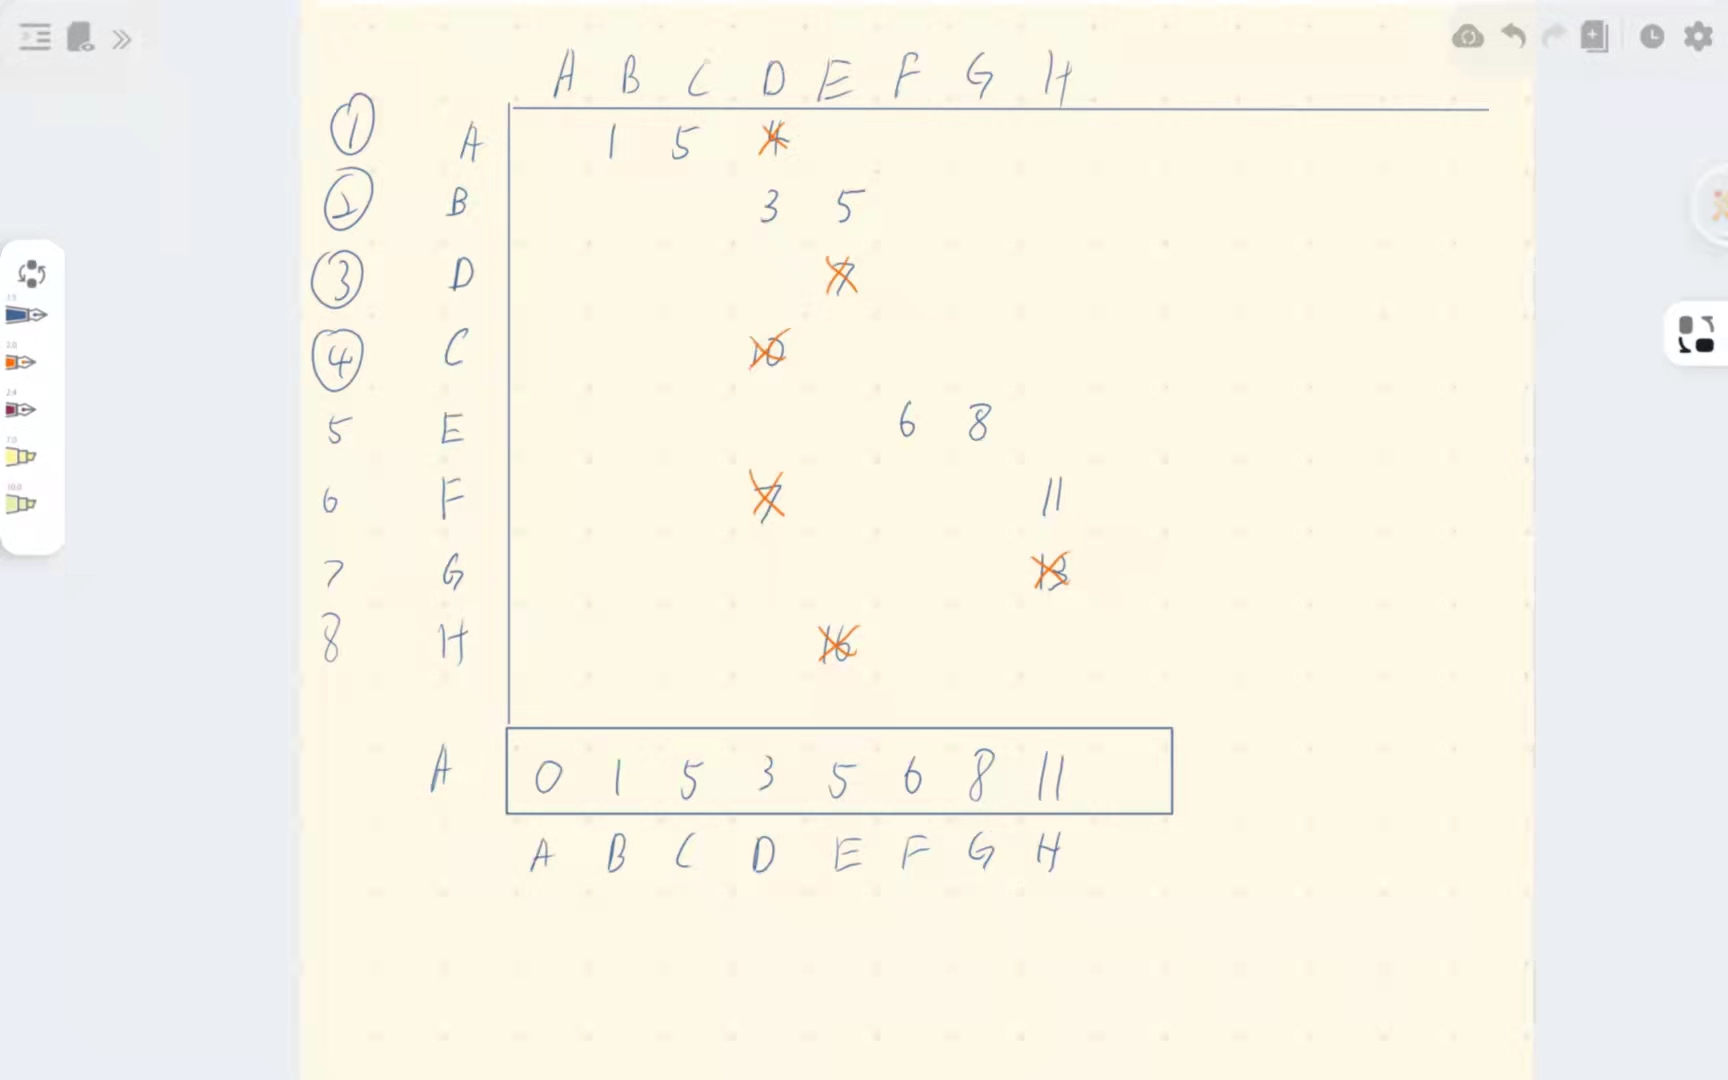 A B C D E F G H
① A 1 5 4
② B 3 5
③ D 7
④ C 10
5 E 6 8
6 F 7 11
7 G 13
8 H 16
A 0 1 5 3 5 6 8 11
A B C D E F G H